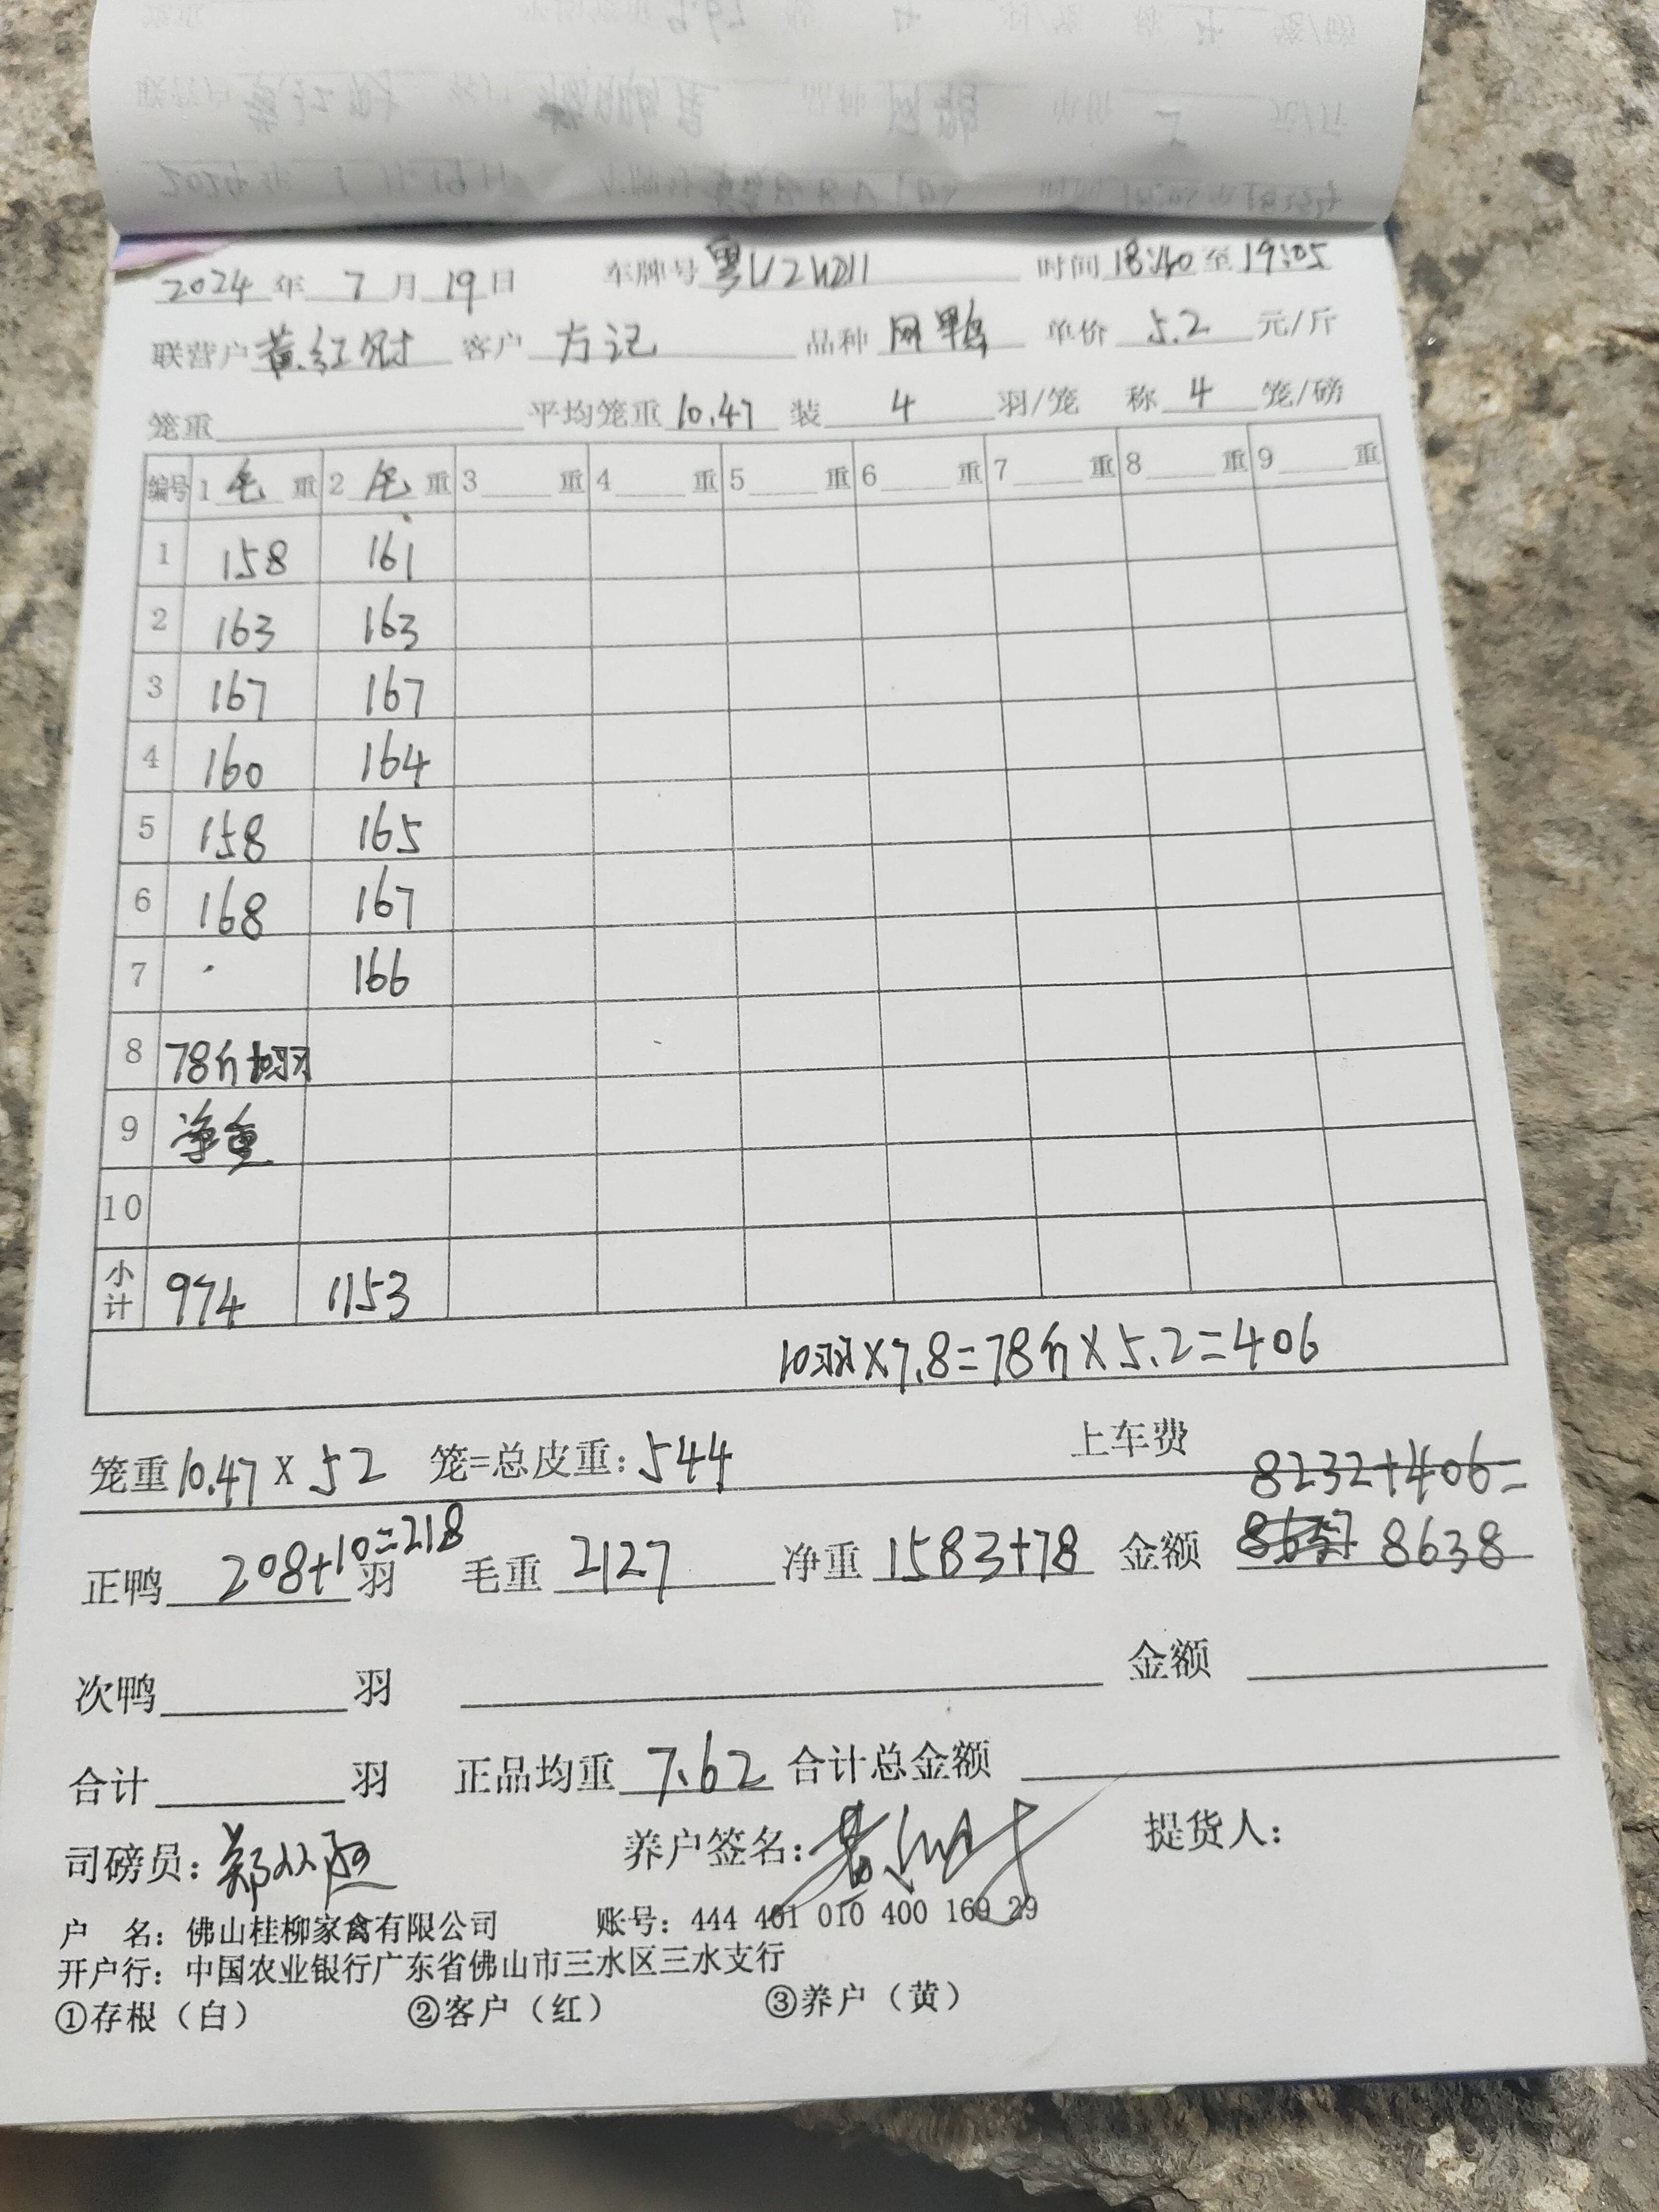 2024 年 7 月 19 日 车牌号 粤 时间 18:40 至 19:05
联营户 黄红 客户 方记 品种 网鸭 单价 5.2 元/斤
笼重 平均笼重 10.47 装 4 羽/笼 称 4 笼/磅
编号 1 毛 重 2 毛 重 3 重 4 重 5 重 6 重 7 重 8 重 9 重
1 158 161
2 163 163
3 167 167
4 160 164
5 158 165
6 168 167
7 166
8 78斤10羽
9 净重
10
小计 974 1153
10羽×7.8=78斤×5.2=406
笼重 10.47 × 52 笼=总皮重: 544 上车费
8232+406=
正鸭 208+10=218 羽 毛重 2127 净重 1583+78 金额 8638
次鸭 羽 金额
合计 羽 正品均重 7.62 合计总金额
司磅员: 郑 养户签名: 提货人:
户 名: 佛山桂柳家禽有限公司 账号: 444 401 010 400 169 29
开户行: 中国农业银行广东省佛山市三水区三水支行
①存根（白） ②客户（红） ③养户（黄）